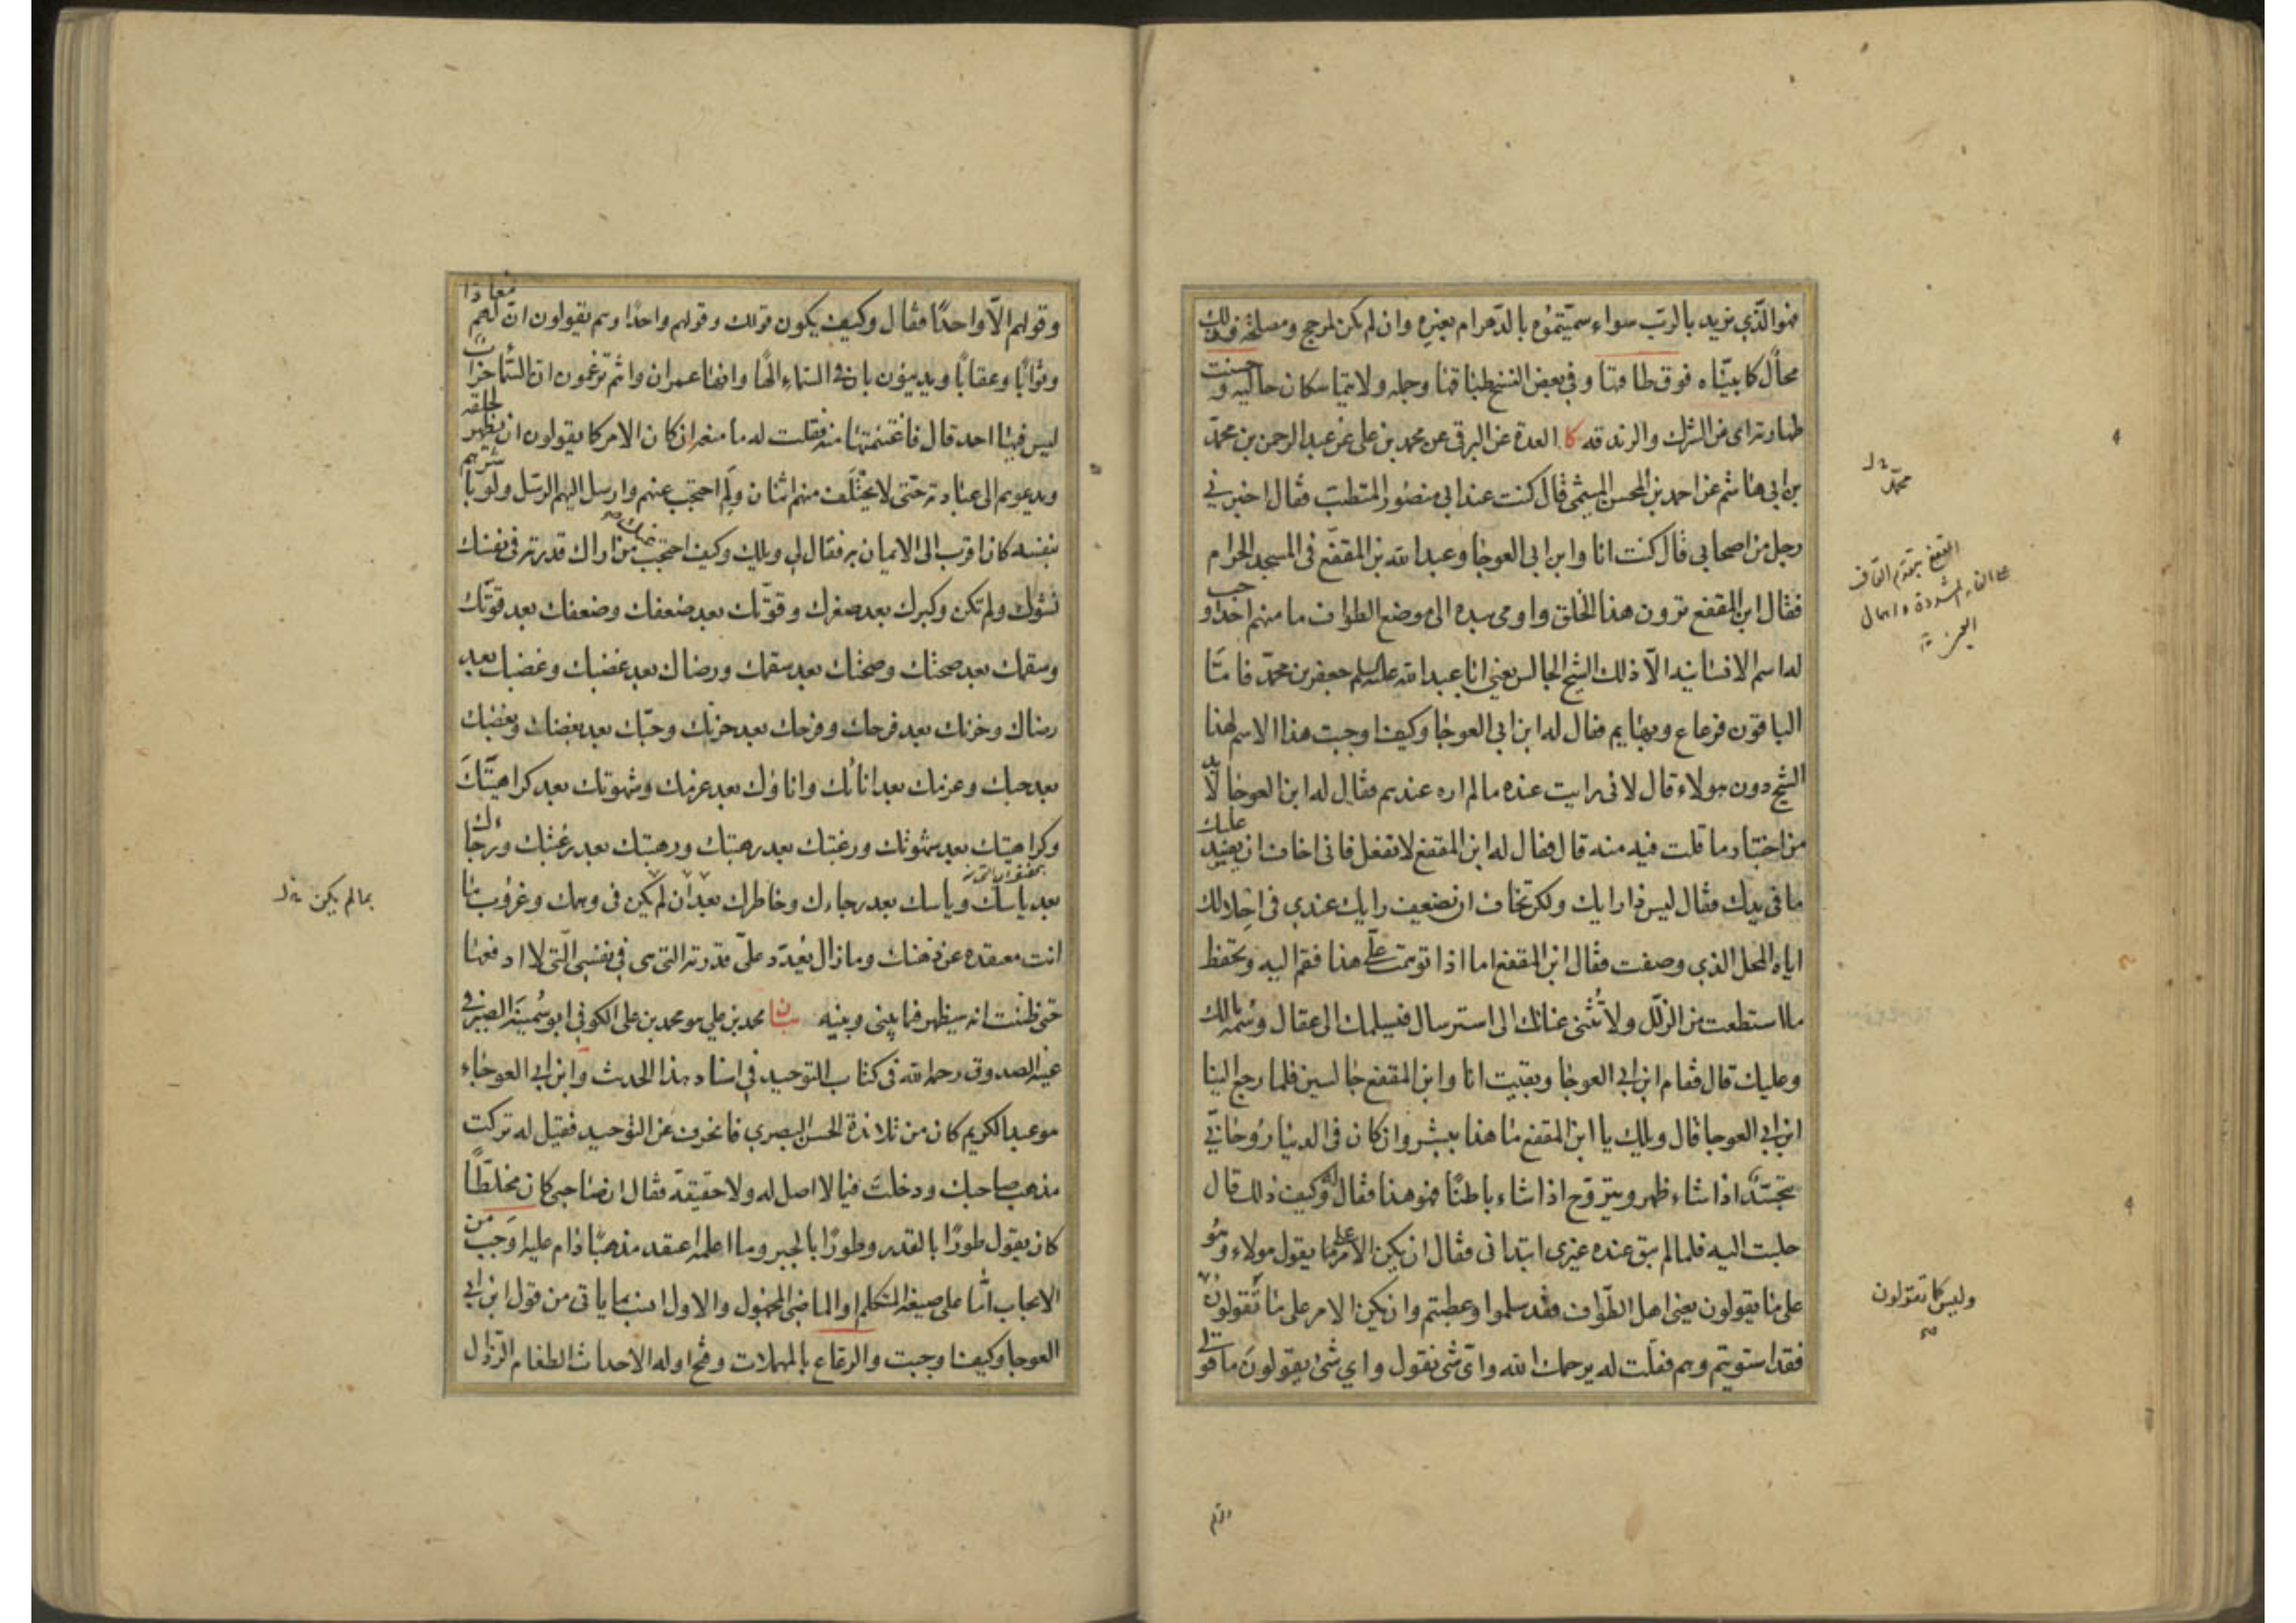 فهو الذي نريد بالرب سواء سميتموه بالدهر ام بغيره وان لم يكن لمرجح ومصلحة فذلك
محال كما بيناه فوق طاقتنا وفي بعض النسخ طبناقها وجله ولا يتماسكان حاليه و حسنت
طهارته اى من الشرك والزندقه كا العدة عن البرقى عن محمد بن على عن عبد الرحمن بن محمد
بن ابى هاشم عن احمد بن المحسن الميثمى قال كنت عند ابى منصور المتطبب فقال اخبرنى
رجل من اصحابى قال كنت انا وابن ابى العوجا وعبد الله بن المقفع فى المسجد الحرام
فقال ابن المقفع ترون هذا الخلق واومى بيده الى موضع الطواف ما منهم احد اوجب
له اسم الانسانية الا ذلك الشيخ الجالس يعنى ابا عبد الله عليه السلم جعفر بن محمد فاما
الباقون فرعاع وبهايم فقال له ابن ابى العوجا وكيف اوجبت هذا الاسم لهذا
الشيخ دون هولاء قال لانى رايت عنده ما لم اره عندهم فقال له ابن العوجا لابد
من اختبار ما قلت فيه منه قال فقال له ابن المقفع لا تفعل فانى اخاف ان يفسد عليك
ما فى يدك فقال ليس ذا رايك ولكن تخاف ان تضعيف رايك عندى فى احلالك
اياه المحل الذى وصفت فقال ابن المقفع اما اذا توهمت على هذا فقم اليه وتحفظ
ما استطعت من الزلل ولا تثنى عنانك الى استرسال فيسلمك الى عقال وسمه مالك
وعليك قال فقام ابن ابى العوجا وبقيت انا وابن المقفع جالسين فلما رجع الينا
ابن ابى العوجا قال ويلك يا ابن المقفع ما هذا ببشر وان كان فى الدنيا روحانى
يتجسد اذا شاء ظهر ويتروح اذا شاء باطنا فهو هذا فقال له وكيف ذلك قال
جلست اليه فلما لم يبق عنده غيرى ابتدانى فقال ان يكن الامر على ما يقول هولاء وهو
على ما يقولون يعنى اهل الطواف فقد سلموا وعطبتم وان يكن الامر على ما تقولون
فقد استويتم وهم فقلت له يرحمك الله واى شى نقول واى شئ يقولون ما قولى
محمد خ ل
المقفع بتقديم القاف
على الفاء المشددة واهمال
العين
وليس كما تقولون
صح
وقولهم الا واحدا فقال وكيف يكون قولك وقولهم واحدا وهم يقولون ان لهم معادا
وثوابا وعقابا ويدينون بان فى السماء الها وانها عمران وانتم تزعمون ان السماء خراب
ليس فيها احد قال فاغتنمتها منه فقلت له ما منعه ان كان الامر كما يقولون ان يظهر لخلقه
ويدعوهم الى عبادته حتى لا يختلف منهم اثنان ولم احتجب عنهم وارسل اليهم الرسل ولو باشرهم
بنفسه كان اقرب الى الايمان به فقال لى ويلك وكيف احتجب عنك من اراك قدرته فى نفسك
نشوك ولم تكن وكبرك بعد صغرك وقوتك بعد ضعفك وضعفك بعد قوتك
وسقمك بعد صحتك وصحتك بعد سقمك ورضاك بعد غضبك وغضبك بعد
رضاك وحزنك بعد فرحك وفرحك بعد حزنك وحبك بعد بغضك وبغضك
بعد حبك وعزمك بعد اناتك واناؤك بعد عزمك وشهوتك بعد كراهيتك
وكراهيتك بعد شهوتك ورغبتك بعد رهبتك ورهبتك بعد رغبتك ورجاءك
بعد ياسك وياسك بعد رجاءك وخاطرك بعد ان لم يكن فى وهمك وغروب ما
انت معتقده عن ذهنك وما زال يعدد على قدرته التى هى فى نفسى التى لا ادفعها
حتى ظننت انه سيظهر فيما بينى وبينه بيان محمد بن على هو محمد بن على الكوفى ابو سمينة الصيرفى
عينه الصدوق رحمه الله فى كتاب التوحيد فى اسناد هذا الحديث وابن ابى العوجاء
هو عبد الكريم كان من تلامذة الحسن البصرى فانحرف عن التوحيد فقيل له تركت
مذهب صاحبك ودخلت فيما لا اصل له ولا حقيقة فقال ان صاحبى كان مخلطا
كان يقول طورا بالقدر وطورا بالجبر وما اعلمه اعتقد مذهبا دام عليه اوجب من
الايجاب اما على صيغة المتكلم او الماضى المجهول والاول انسب بما ياتى من قول ابن ابى
العوجا وكيف اوجبت والرعاع بالمهملات وفتح اوله الاحداث الطغام الرذال
بما لم يكن خ ل